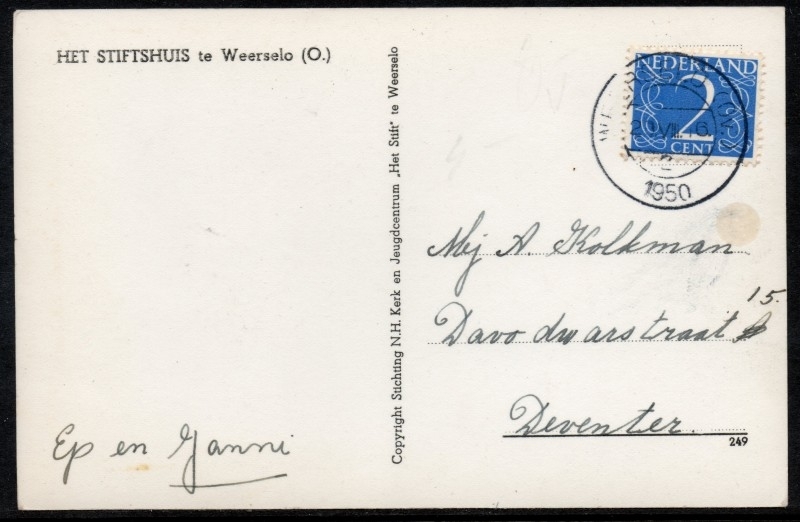 HET STIFTSHUIS te Weerselo (O.)
Ep en Janni
Copyright Stichting N.H. Kerk en Jeugdcentrum „Het Stift" te Weerselo
NEDERLAND
2
CENT
1950
Mej A. Kolkman
15.
Davo dwarsstraat
Deventer.
249